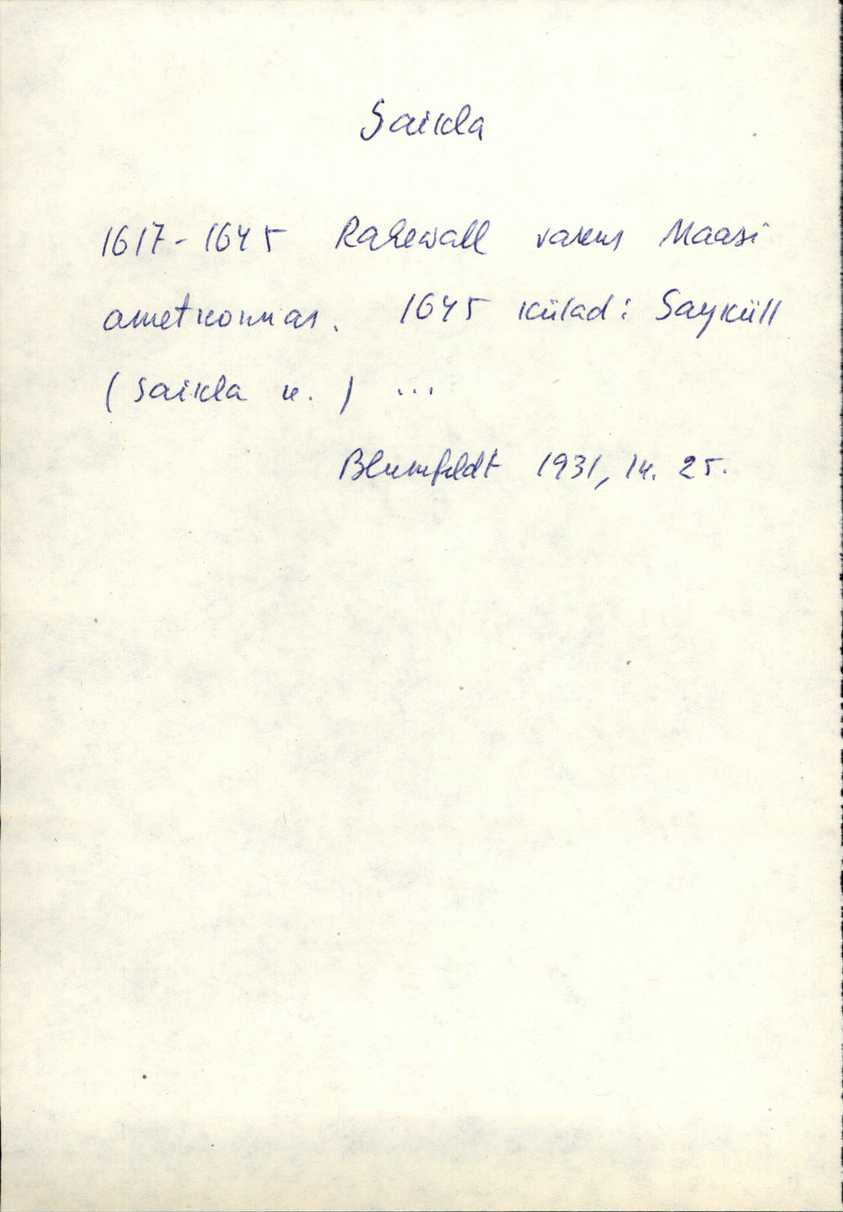 Saikla
1617-1645 Rahewall vakus Maasi
ametkonnas. 1645 külad: Sayküll
(Saikla k.) ...
Blumfeldt 1931, lk. 25.